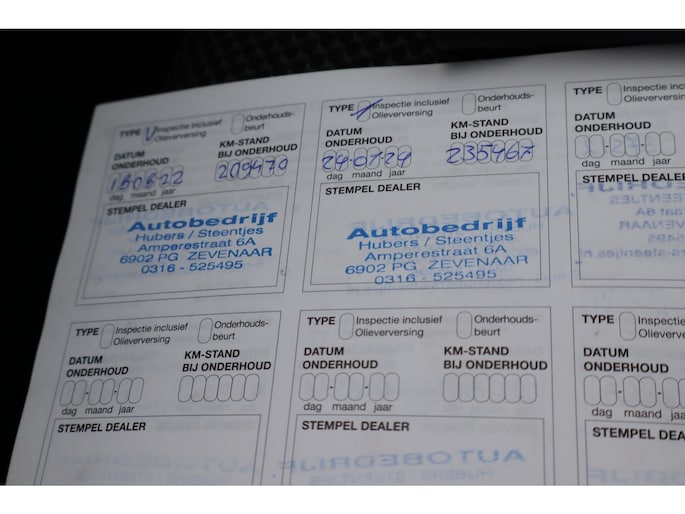 TYPE Inspectie inclusief Olieverversing Onderhouds-beurt
DATUM ONDERHOUD KM-STAND BIJ ONDERHOUD
209470
dag maand jaar
STEMPEL DEALER
Autobedrijf
Hubers / Steentjes
Amperestraat 6A
6902 PG ZEVENAAR
0316 - 525495
TYPE Inspectie inclusief Olieverversing Onderhouds-beurt
DATUM ONDERHOUD KM-STAND BIJ ONDERHOUD
24-01-24 235467
dag maand jaar
STEMPEL DEALER
Autobedrijf
Hubers / Steentjes
Amperestraat 6A
6902 PG ZEVENAAR
0316 - 525495
TYPE Inspectie inc
Olieverversing
DATUM
ONDERHOUD
dag maand jaar
STEMPEL DEALE
TYPE Inspectie inclusief Olieverversing Onderhouds-beurt
DATUM ONDERHOUD KM-STAND BIJ ONDERHOUD
dag maand jaar
STEMPEL DEALER
TYPE Inspectie inclusief Olieverversing Onderhouds-beurt
DATUM ONDERHOUD KM-STAND BIJ ONDERHOUD
dag maand jaar
STEMPEL DEALER
TYPE Inspectie
Olieverve
DATUM
ONDERHOUD
dag maand jaar
STEMPEL DEA